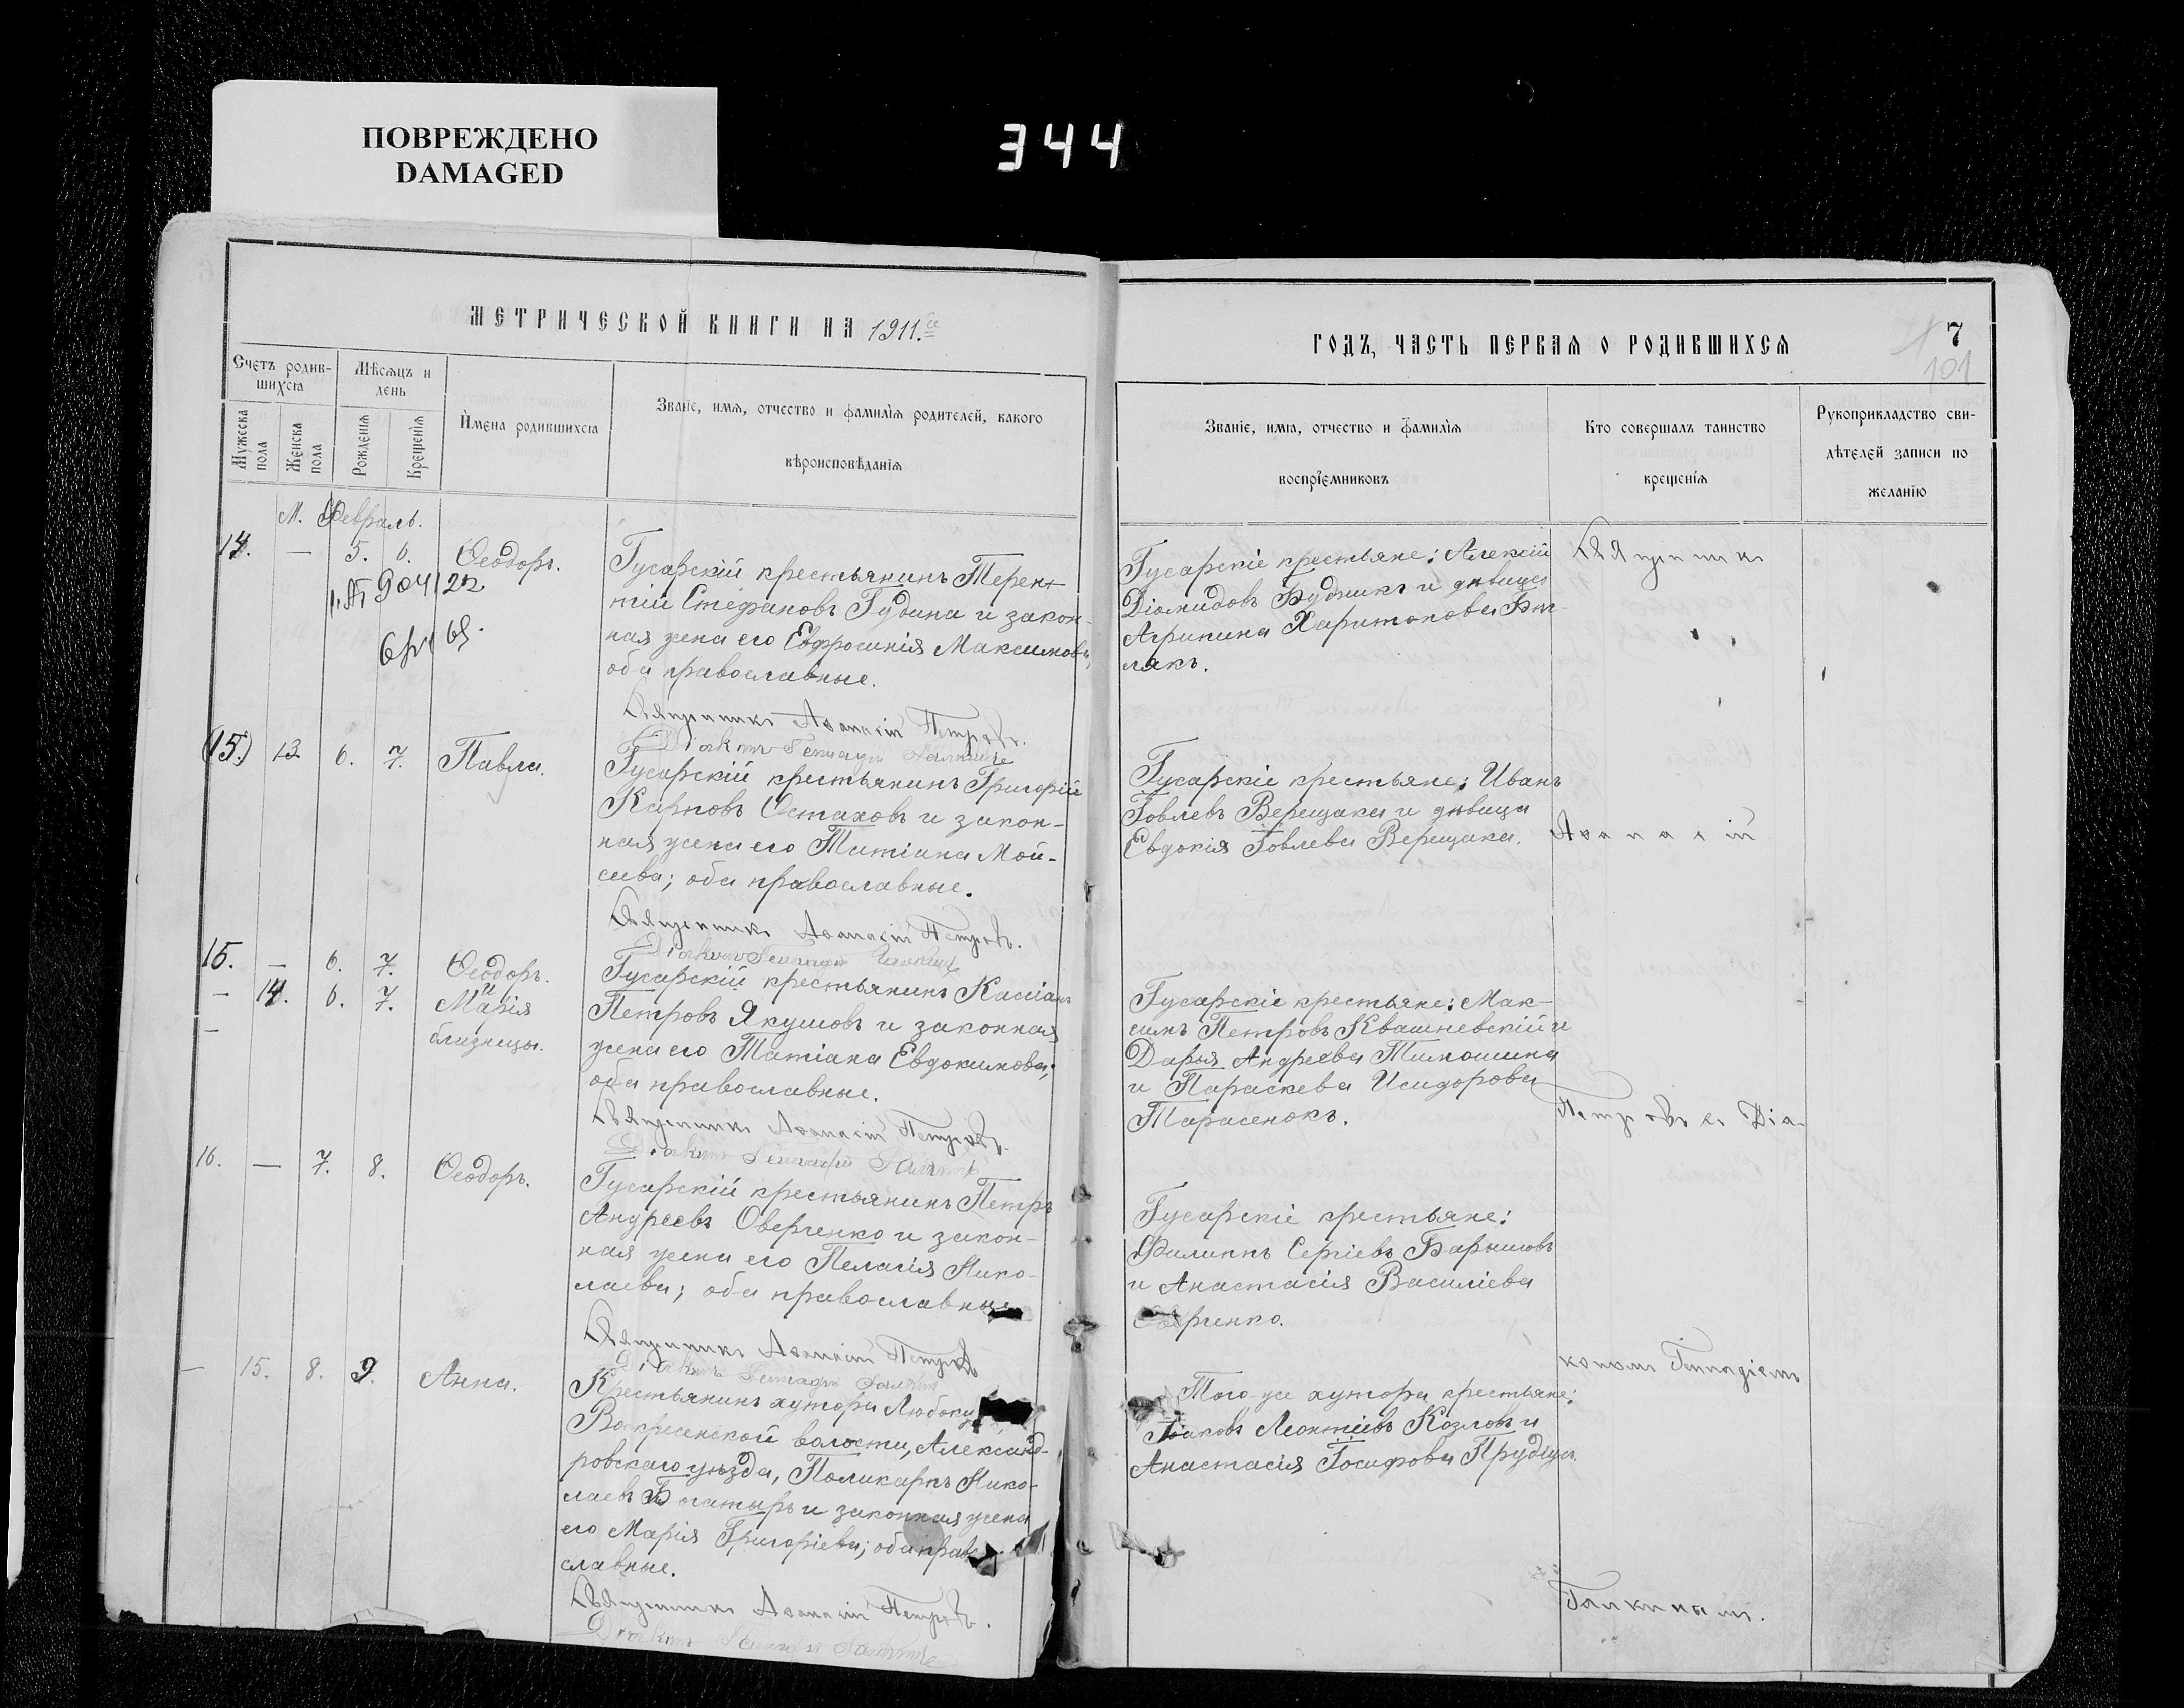 ПОВРЕЖДЕНО
DAMAGED
344
МЕТРИЧЕСКОЙ КНИГИ НА 1911.й
Счетъ родив-
шихся
Мѣсяцъ и
день
Имена родившихся
Званіе, имя, отчество и фамилія родителей, какого
вѣроисповѣданія
Мужеска
пола
Женска
пола
Рожденія
Крещенія
М. Февраль.
14. — 5. 6. Ѳеодоръ.
Гусарскій крестьянинъ Терен-
тій Стефановъ Гудина и закон-
ная жена его Евфросинія Максимова,
оба православные.
Священникъ Аѳанасій Петровъ.
Діаконъ Геннадій
(15.) 13. 6. 7. Павла.
Гусарскій крестьянинъ Григорій
Карповъ Остаховъ и закон-
ная жена его Татіана Мой-
сеева; оба православные.
Священникъ Аѳанасій Петровъ.
Діаконъ Геннадій
15. — 6. 7. Ѳеодоръ.
и
— 14. 6. 7. Марія
близнецы.
Гусарскій крестьянинъ Кассіанъ
Петровъ Якушовъ и законная
жена его Татіана Евдокимова;
оба православные.
Священникъ Аѳанасій Петровъ.
Діаконъ Геннадій
16. — 7. 8. Ѳеодоръ.
Гусарскій крестьянинъ Петръ
Андреевъ Оверченко и закон-
ная жена его Пелагія Нико-
лаева; оба православные
Священникъ Аѳанасій Петровъ
Діаконъ Геннадій
— 15. 8. 9. Анна.
Крестьянинъ хутора
Воскресенской волости, Александ-
ровскаго уѣзда, Поликарпъ Нико-
лаевъ Богатырь и законная жена
его Марія Григоріева; оба право
славные.
Священникъ Аѳанасій Петровъ.
Діаконъ Геннадій
ГОДЪ, ЧАСТЬ ПЕРВАЯ О РОДИВШИХСЯ
7
101
Званіе, имя, отчество и фамилія
воспріемниковъ
Кто совершалъ таинство
крещенія
Рукоприкладство сви-
дѣтелей записи по
желанію
Гусарскіе крестьяне: Алексій
Діомидовъ Будникъ и дѣвица
Агрипина Харитонова
лякъ.
Гусарскіе крестьяне: Иванъ
Іовлевъ Верещака и дѣвица
Евдокія Іовлева Верещака.
Гусарскіе крестьяне: Мак-
симъ Петровъ Квашневскій и
Дарья Андреева Тимошина
и Параскева Исидорова
Тарасенокъ.
Гусарскіе крестьяне:
Филиппъ Сергіевъ Барышовъ
и Анастасія Василіева
Того-же хутора крестьяне:
Іаковъ Леонтіевъ Козловъ и
Анастасія Іосифова
Священникъ
Аѳанасій
Петровъ съ Діа-
кономъ Геннадіемъ
Галкинымъ.